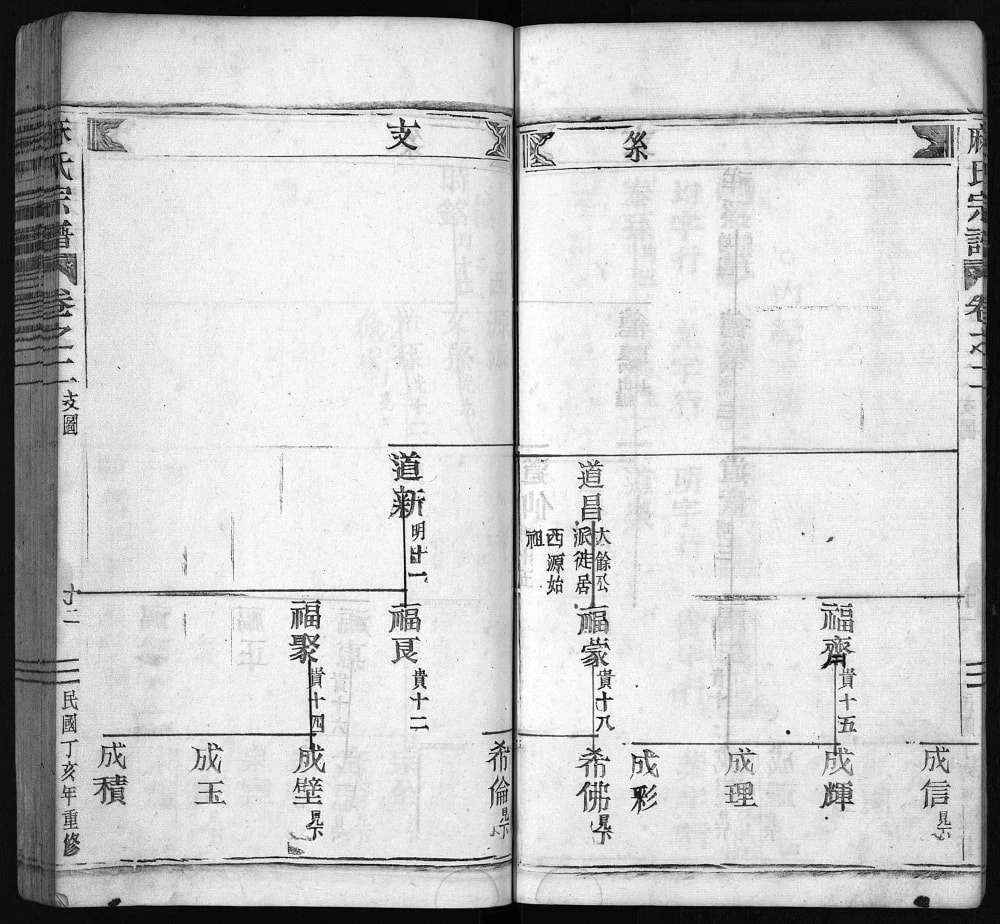 麻氏宗譜
卷之二
支圖
糸
道昌
大餘公
派徙居
西源始
祖
福齊
貴十五
福蒙
貴十八
成信
成輝
成理
成彩
希佛
支
道新
明廿一
福良
貴十二
福聚
貴十四
希倫
成璧
成玉
成積
麻氏宗譜
卷之二
支圖
廿二
民國丁亥年重修